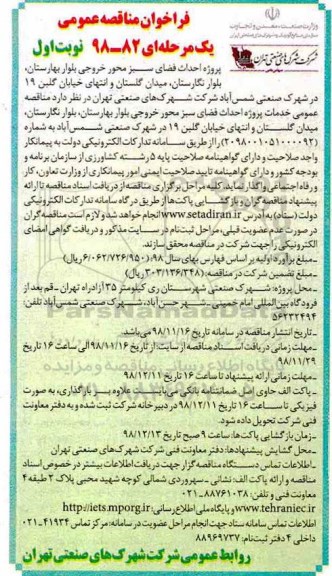 وزارت صنعت، معدن و تجارت
شرکت شهرک های صنعتی تهران
فراخوان مناقصه عمومی
یک مرحله‌ای ۸۲-۹۸ نوبت اول
پروژه احداث فضای سبز محور خروجی بلوار بهارستان،
بلوار نگارستان، میدان گلستان و انتهای خیابان گلبن ۱۹
در شهرک صنعتی شمس‌آباد شرکت شهرک‌های صنعتی تهران در نظر دارد مناقصه
عمومی خدمات پروژه احداث فضای سبز محور خروجی بلوار بهارستان، بلوار نگارستان،
میدان گلستان و انتهای خیابان گلبن ۱۹ در شهرک صنعتی شمس‌آباد به شماره
(۲۰۹۸۰۰۱۰۵۱۰۰۰۰۹۲) را از طریق سامانه تدارکات الکترونیکی دولت به پیمانکار
واجد صلاحیت و دارای گواهینامه صلاحیت پایه ۵ رشته کشاورزی از سازمان برنامه و
بودجه کشور و دارای گواهینامه تایید صلاحیت ایمنی امور پیمانکاری از وزارت تعاون، کار
و رفاه اجتماعی واگذار نماید. کلیه مراحل برگزاری مناقصه از دریافت اسناد مناقصه تا ارائه
پیشنهاد مناقصه گران و بازگشایی پاکت‌ها از طریق درگاه سامانه تدارکات الکترونیکی
دولت (ستاد) به آدرس www.setadiran.ir انجام خواهد شد و لازم است مناقصه گران
در صورت عدم عضویت قبلی، مراحل ثبت نام در سایت مذکور و دریافت گواهی امضای
الکترونیکی را جهت شرکت در مناقصه محقق سازند.
-مبلغ برآورد اولیه بر اساس فهارس بهای سال ۹۸: (۶/۰۶۲/۷۲۶/۹۵۰ ریال)
-مبلغ تضمین شرکت در مناقصه: (۳۰۳/۱۳۶/۳۴۸ ریال)
-محل پروژه: شهرک صنعتی شهرستان ری کیلومتر ۳۵ آزادراه تهران ـ قم بعد از
فرودگاه بین‌المللی امام خمینی ـ شهر حسن‌آباد، شهرک صنعتی شمس‌آباد تلفن:
۵۶۲۳۲۴۹۴
-تاریخ انتشار مناقصه در سامانه تاریخ ۹۸/۱۱/۱۶ می‌باشد.
-مهلت زمانی دریافت اسناد مناقصه از سایت: از تاریخ ۹۸/۱۱/۱۶ الی ساعت ۱۶ تاریخ
۹۸/۱۱/۲۹
-مهلت زمانی ارائه پیشنهاد تا ساعت ۱۶ تاریخ ۹۸/۱۲/۱۱
-پاکت الف حاوی اصل ضمانتنامه بانکی می‌بایست علاوه بر بارگذاری، به صورت
فیزیکی تا ساعت ۱۶ تاریخ ۹۸/۱۲/۱۱ در دبیرخانه شرکت ثبت شده و به دفتر معاونت
فنی شرکت تحویل داده شود.
-زمان بازگشایی پاکت‌ها: ساعت ۹ صبح تاریخ ۹۸/۱۲/۱۳
-محل گشایش پیشنهادها: دفتر معاونت فنی شرکت شهرک‌های صنعتی تهران
-اطلاعات تماس دستگاه مناقصه گزار جهت دریافت اطلاعات بیشتر در خصوص اسناد
مناقصه و ارائه پاکت الف: نشانی ـ سهروردی شمالی کوچه شهید محبی پلاک ۲ طبقه ۴
معاونت فنی و تلفن: ۸۸۷۶۱۰۳۸-۰۲۱
www.tehraniec.ir و پایگاه ملی اطلاع رسانی: http://iets.mporg.ir
اطلاعات تماس سامانه ستاد جهت انجام مراحل عضویت در سامانه: مرکز تماس ۴۱۹۳۴-۰۲۱
داخلی ۴ دفتر ثبت نام: ۸۸۹۶۹۷۳۷
روابط عمومی شرکت شهرک های صنعتی تهران